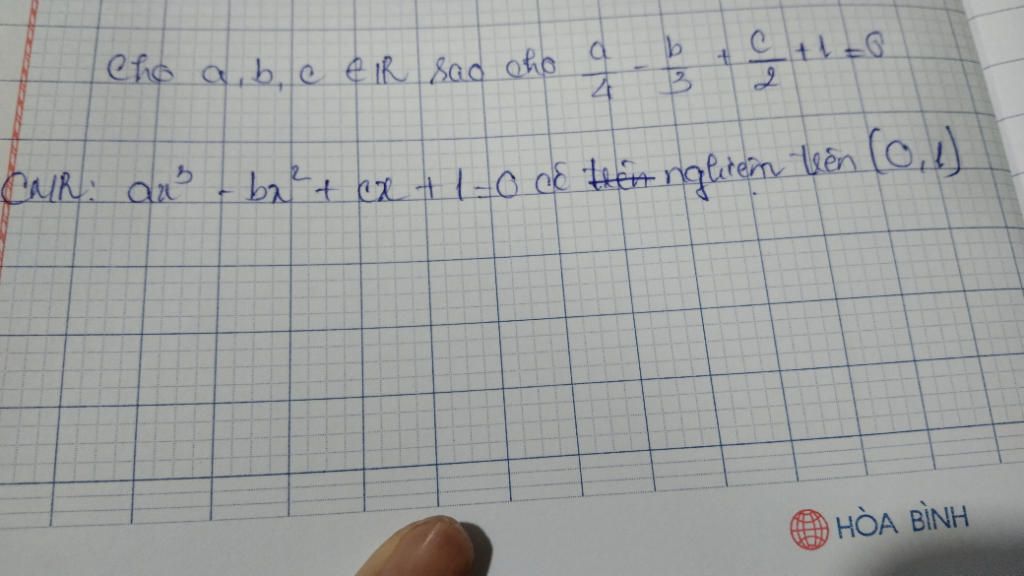 Cho a, b, c ∈ IR sao cho a/4 - b/3 + c/2 + 1 = 0
CMR: ax³ - bx² + cx + 1 = 0 có nghiệm trên (0,1)
HÒA BÌNH